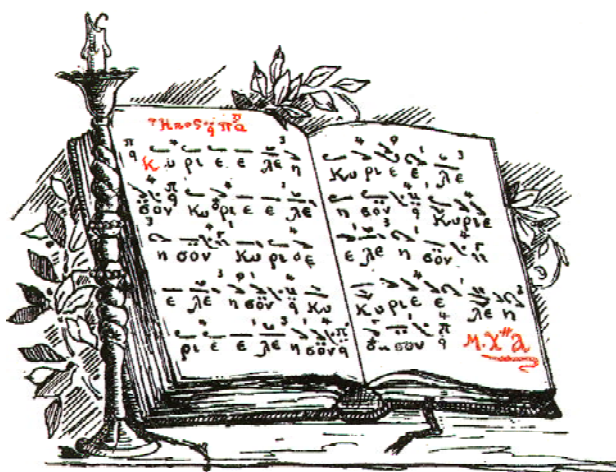 Ἦχος πα
Κυ ρι ε ε λε η
σον Κυ ρι ε ε λε
η σον Κυ ρι
ε λε η σον Κυ
ρι ε ε λε η σον
Κυ ρι ε ε λε
η σον Κυριε
ε λε η σον
Κυ ρι ε ε λε η
σον